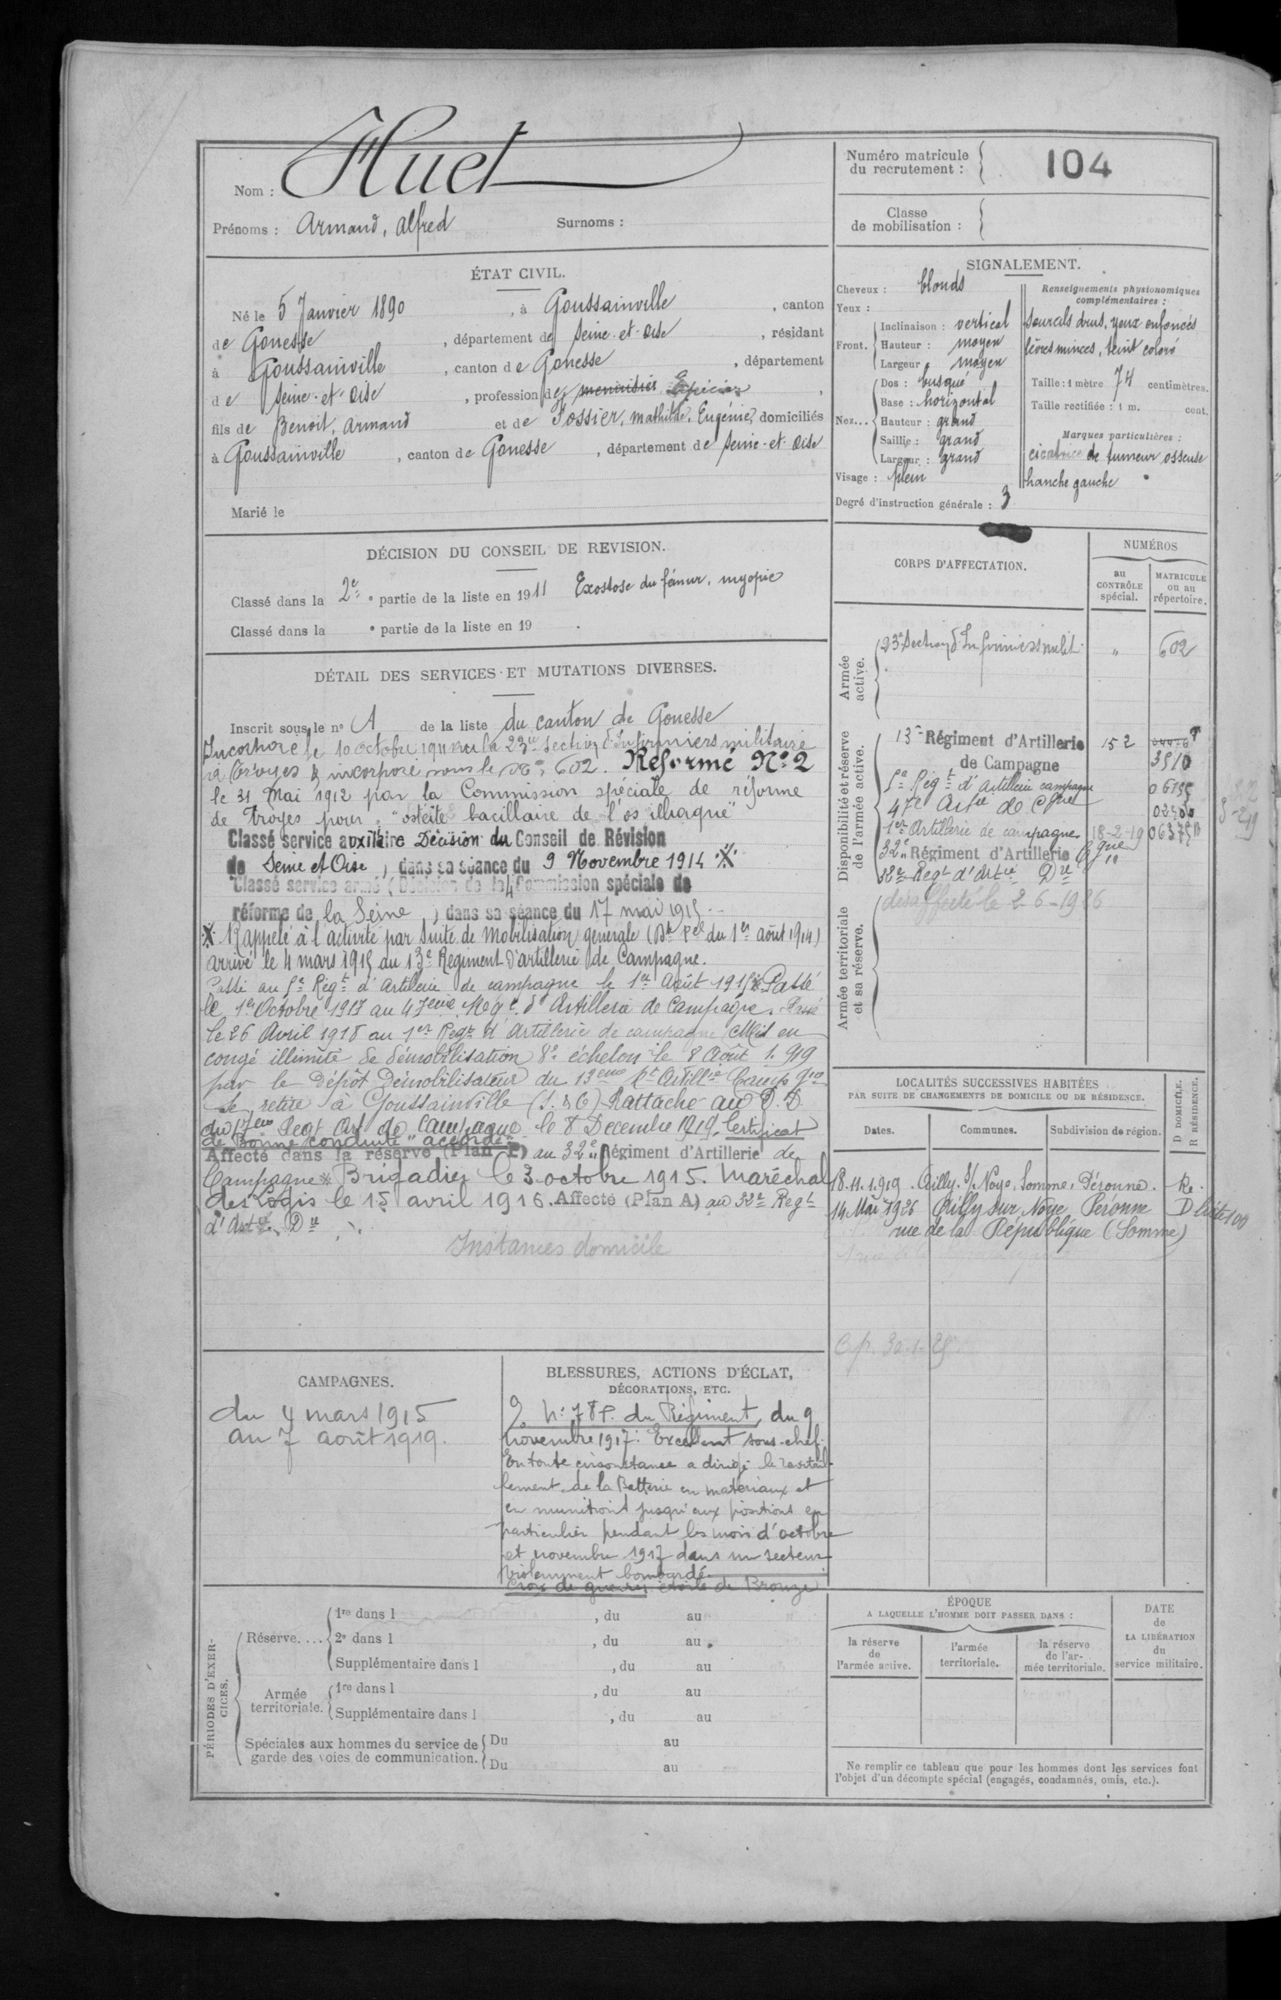 Nom : Huet
Prénoms : Armand, Alfred Surnoms :
Numéro matricule du recrutement : 104
Classe de mobilisation :
ÉTAT CIVIL.
Né le 5 Janvier 1890, à Goussainville, canton
de Gonesse, département de Seine-et-Oise, résidant
à Goussainville, canton de Gonesse, département
de Seine-et-Oise, profession de menuisier Épicier,
fils de Benoit, Armand et de Fossier, Mathilde, Eugénie, domiciliés
à Goussainville, canton de Gonesse, département de Seine-et-Oise
Marié le
SIGNALEMENT.
Cheveux : blonds
Yeux :
Front. Inclinaison : vertical
Hauteur : moyen
Largeur : moyen
Nez... Dos : busqué
Base : horizontal
Hauteur : grand
Saillie : grand
Largeur : grand
Visage : plein
Degré d'instruction générale : 3
Renseignements physionomiques
complémentaires :
Sourcils drus, yeux enfoncés
lèvres minces, teint coloré
Taille : 1 mètre 74 centimètres.
Taille rectifiée : 1 m. cent.
Marques particulières :
cicatrice de tumeur osseuse
hanche gauche
DÉCISION DU CONSEIL DE REVISION.
Classé dans la 2e partie de la liste en 1911 Exostose du fémur, myopie
Classé dans la partie de la liste en 19 .
DÉTAIL DES SERVICES ET MUTATIONS DIVERSES.
Inscrit sous le n° A de la liste du canton de Gonesse
Incorporé le 10 octobre 1911 à la 23e Section d'Infirmiers militaire
à Troyes & incorporé sous le No 602. Réformé No 2
le 31 Mai 1912 par la Commission spéciale de réforme
de Troyes pour "ostéite bacillaire de l'os iliaque"
Classé service auxiliaire Décision du Conseil de Révision
de Seine et Oise, dans sa séance du 9 Novembre 1914
Classé service armé (Décision de la 4 Commission spéciale de
réforme de la Seine) dans sa séance du 17 mai 1915
Rappelé à l'activité par suite de Mobilisation générale (Dt Pel du 1er août 1914)
arrivé le 4 mars 1915 du 13e Régiment d'artillerie de Campagne.
Passé au 5e Régt d'Artillerie de campagne le 1er Août 1915 Passé
le 1er Octobre 1917 au 47eme Régt d'Artillerie de Campagne. Passé
le 26 Avril 1918 au 1er Regt d'Artillerie de campagne Mis en
congé illimité de démobilisation 8e échelon le 8 Août 1919
par le Dépôt Démobilisateur du 13eme Rt Artillie Campgne
Se retire à Goussainville (S. & O) Rattaché au D. D
Art de Campagne le 8 Décembre 1919. Certificat
de Bonne conduite "accordé"
Affecté dans la réserve (Plan P) au 32e Régiment d'Artillerie de
Campagne Brigadier le 3 octobre 1915. Maréchal
des Logis le 15 avril 1916. Affecté (Plan A) au 32e Regt
d'Artie Dre
Instances domicile
CORPS D'AFFECTATION.
NUMÉROS
au CONTRÔLE spécial.
MATRICULE ou au répertoire.
Armée active.
23e Section d'Infirmiers milit. " 602
Disponibilité et réserve de l'armée active.
13e Régiment d'Artillerie 152
de Campagne 3510
5e Régt d'Artillerie campagne
47e Artie de Cgne
1er Artillerie de campagne 18-2-19
32e Régiment d'Artillerie Cgne
32e Regt d'Artie Dre
Armée territoriale et sa réserve.
desaffecté le 2-6-1926
LOCALITÉS SUCCESSIVES HABITÉES
PAR SUITE DE CHANGEMENTS DE DOMICILE OU DE RÉSIDENCE.
Dates. Communes. Subdivision de région. D DOMICILE. R RÉSIDENCE.
18.11.1919 Ailly s/ Noye, Somme, Péronne. Re.
14 Mai 1926 Ailly sur Noye Péronne D
rue de la République (Somme)
CAMPAGNES.
du 4 mars 1915
au 7 août 1919.
BLESSURES, ACTIONS D'ÉCLAT,
DÉCORATIONS, ETC.
du Régiment, du 9
novembre 1917 : Excellent sous-chef.
En toute circonstance a dirigé le ravitail-
lement de la Batterie en matériaux et
en munitions jusqu'aux positions en
particulier pendant les mois d'octobre
et novembre 1917 dans un secteur
violemment bombardé.
Croix de guerre étoile de Bronze
PÉRIODES D'EXERCICES.
Réserve.... 1re dans l , du au
2e dans l , du au
Supplémentaire dans l , du au
Armée territoriale. 1re dans l , du au
Supplémentaire dans l , du au
Spéciales aux hommes du service de Du au
garde des voies de communication. Du au
ÉPOQUE
A LAQUELLE L'HOMME DOIT PASSER DANS :
la réserve de l'armée active.
l'armée territoriale.
la réserve de l'armée territoriale.
DATE de LA LIBÉRATION du service militaire.
Ne remplir ce tableau que pour les hommes dont les services font
l'objet d'un décompte spécial (engagés, condamnés, omis, etc.).